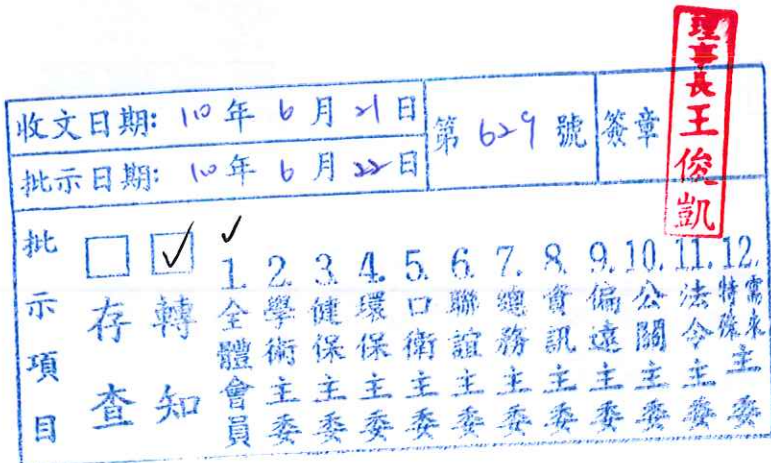 理事長王俊凱
收文日期: 110年6月21日
第629號
簽章
批示日期: 110年6月22日
批示項目
存查
轉知
1.全體會員
2.學術主委
3.健保主委
4.環保主委
5.口衛主委
6.聯誼主委
7.總務主委
8.資訊主委
9.偏遠主委
10.公關主委
11.法令主委
12.特殊需求主委